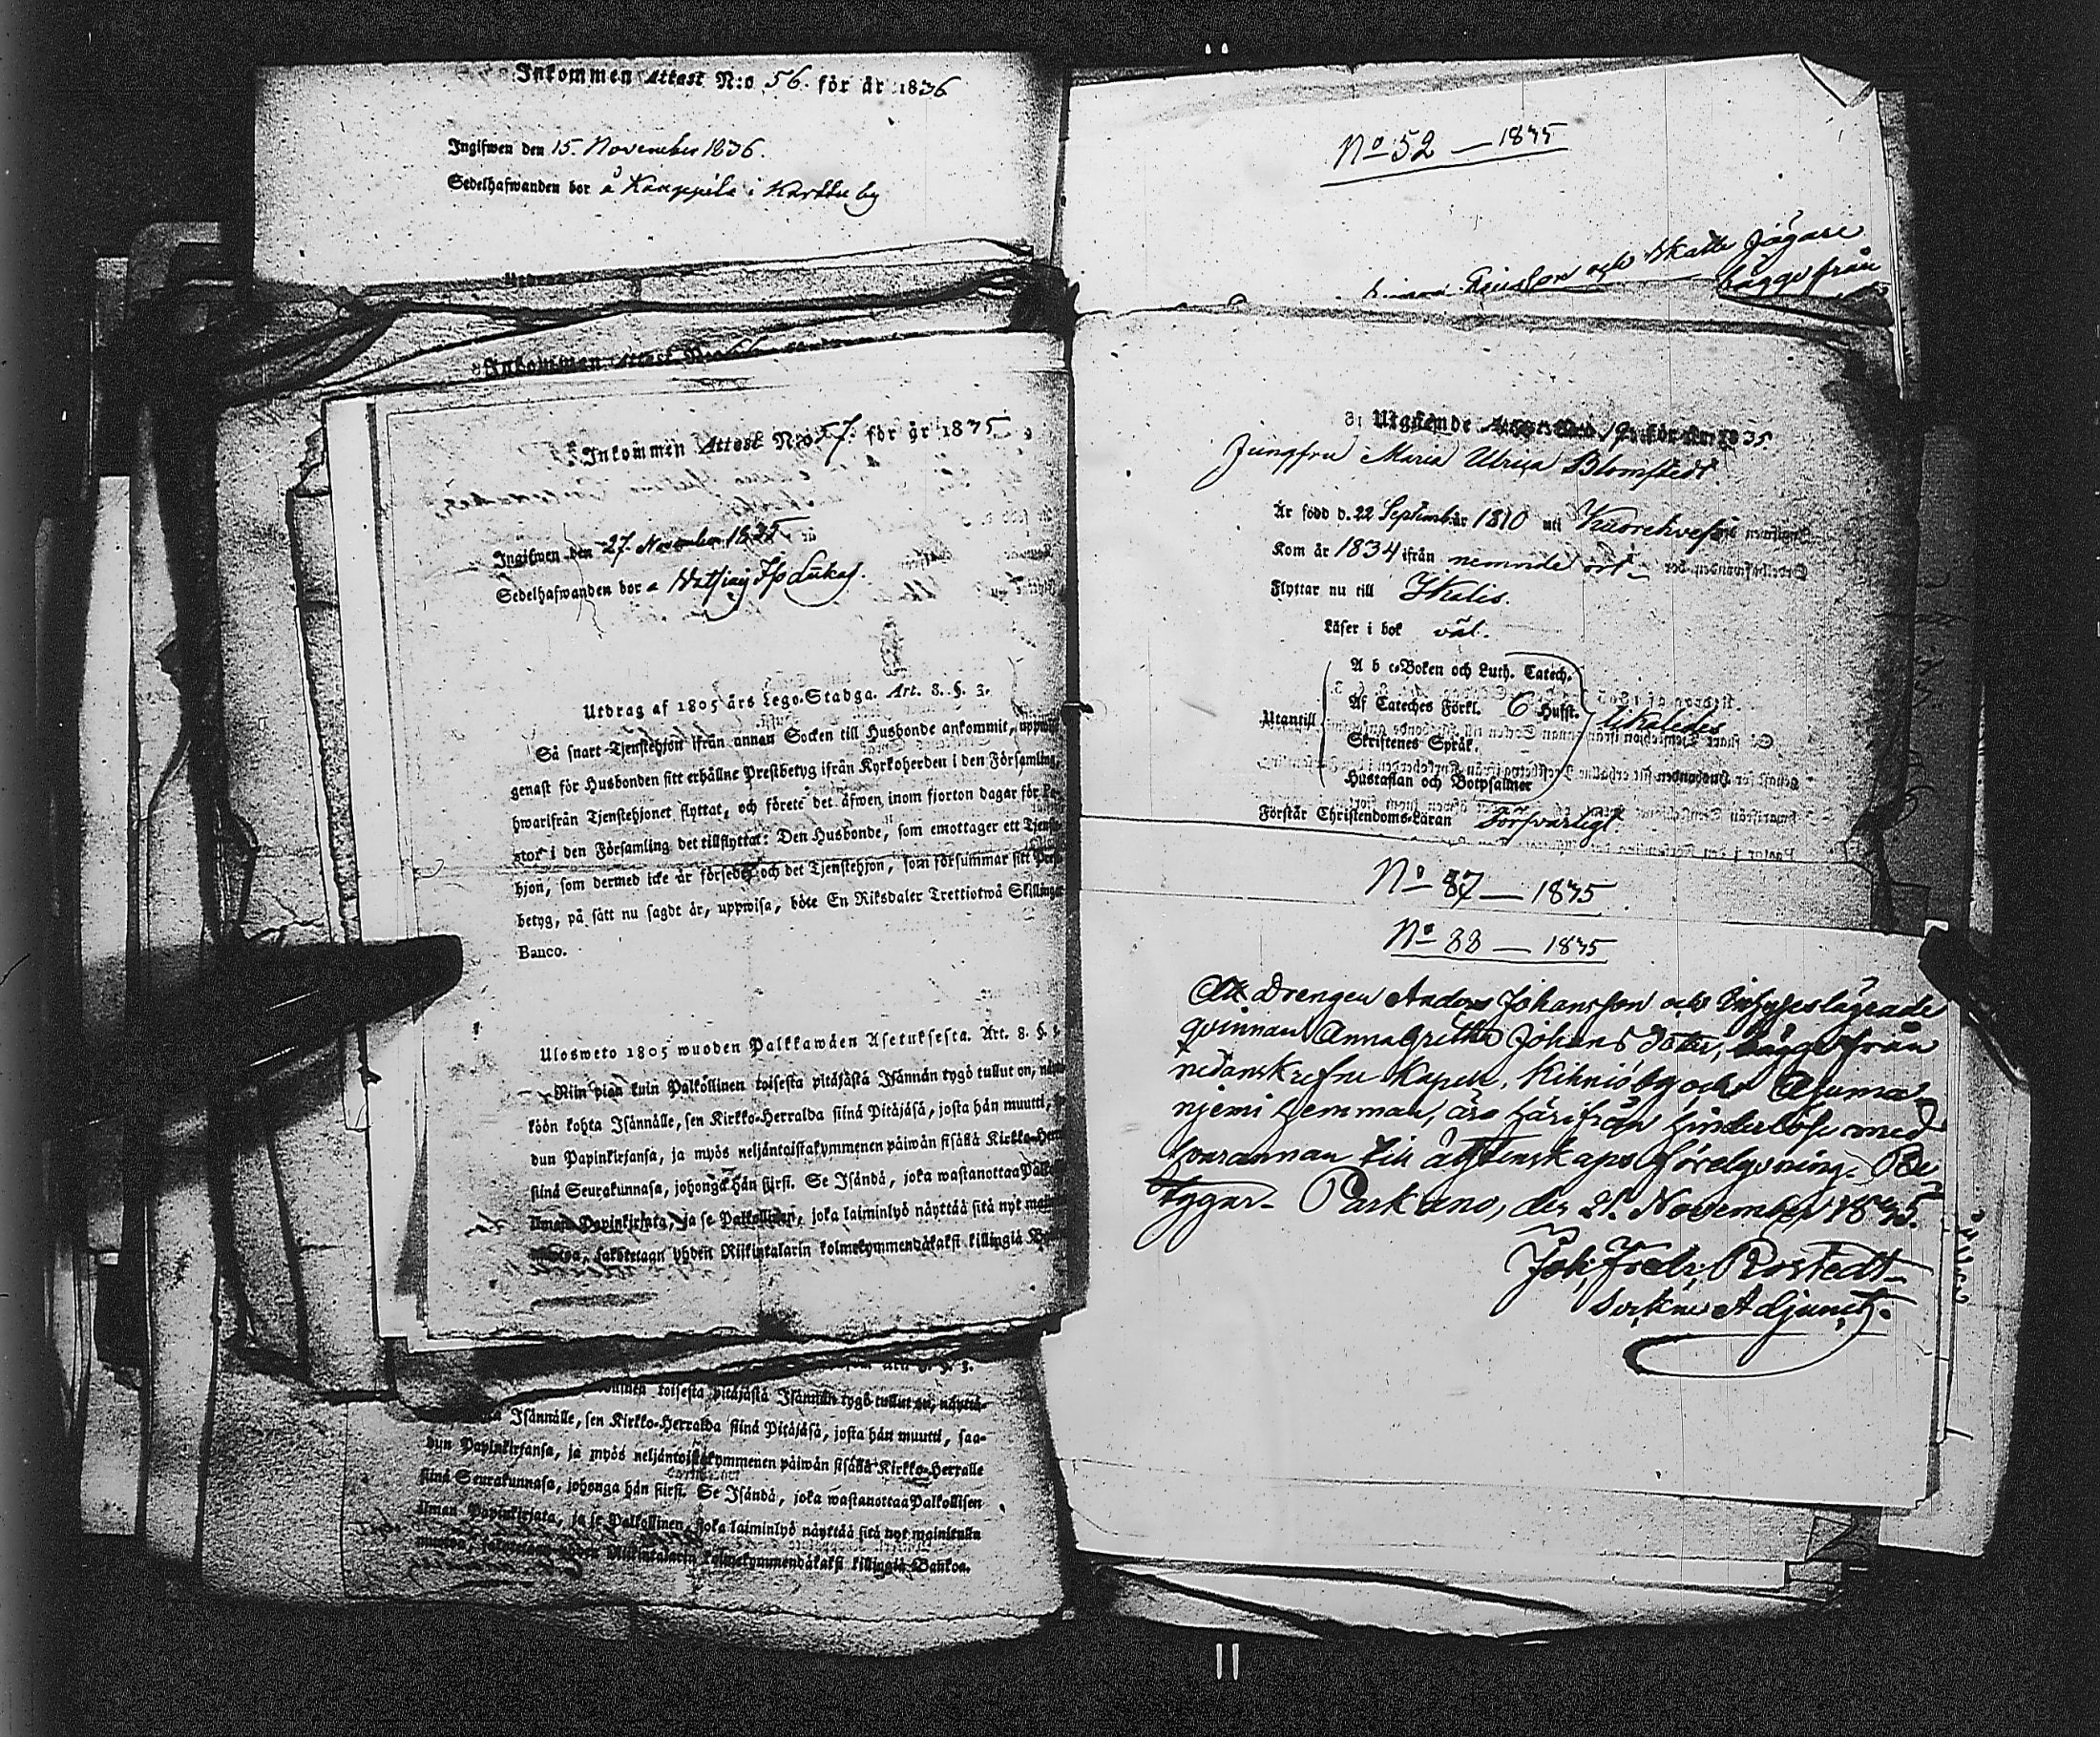 Inkommen Attest N:o 56. för år 1836
Ingifwen den 15. November 1836.
Sedelhafwanden bor å Kauppila i Karttu by
Inkommen Attest
Inkommen Attest N:o 57. för år 1835
Ingifwen den 27. November 1835
Sedelhafwanden bor a
Utdrag af 1805 års Lego-Stadga. Art. 8. §. 3.
Så snart Tjenstehjon ifrån annan Socken till Husbonde ankommit, uppwise
genast för Husbonden sitt erhållne Prestbetyg ifrån Kyrkoherden i den Församling,
hwarifrån Tjenstehjonet flyttat, och förete det äfwen inom fjorton dagar för Pa-
stor i den Församling det tillflyttat: Den Husbonde, som emottager ett Tjenste-
hjon, som dermed icke är försedt, och det Tjenstehjon, som försummar sitt Prest-
betyg, på sätt nu sagdt är, uppwisa, böte En Riksdaler Trettiotwå Skillingar
Banco.
Ulosweto 1805 wuoden Palkkawäen Asetuksesta. Art. 8. §. 3.
Niin pian kuin Palkollinen toisesta pitäjästä Isännän tygö tullut on, näyttä-
köön kohta Isännälle, sen Kirkko-Herralda siinä Pitäjäsä, josta hän muutti,
dun Papinkirjansa, ja myös neljäntoistakymmenen päiwän sisällä Kirkko-Her
siinä Seurakunnasa, johonga hän siirsi. Se Isändä, joka wastanottaa Palko
ilman Papinkirjata, ja se Palkollinen, joka laiminlyö näyttää sitä nyt
sakotetaan yhden Riikintalarin kolmekymmendäkaksi killingiä
toisesta pitäjästä Isännän tygö tullut on, näyttä-
Isännälle, sen Kirkko-Herralda siinä Pitäjäsä, josta hän muutti, saa-
dun Papinkirjansa, ja myös neljäntoistakymmenen päiwän sisällä Kirkko-Herralle
siinä Seurakunnasa, johonga hän siirsi. Se Isändä, joka wastanottaa Palkollisen
ilman Papinkirjata, ja se Palkollinen, joka laiminlyö näyttää sitä nyt mainitulla
muotoa, sakotetaan yhden Riikintalarin kolmekymmendäkaksi killingiä Bankoa.
No 52 — 1835
och Skatte Jägare
bägge från
Utgående 19 för år 1835.
Jungfru Maria Ulrica Blomstedt.
Är född d. 22 September år 1810 uti Kuorehvesi
Kom år 1834 ifrån nemnde ort
Flyttar nu till Ikalis.
Läser i bok väl.
A b c-Boken och Luth. Catech.
Af Cateches Förkl. 6 Hufst.
Utantill likaledes
Skriftenes Språk.
Hustaflan och Botpsalmer
Förstår Christendoms-Läran Försvarligt.
No 87 — 1835
No 88 — 1835
Att Drengen Anders Johansson och
qvinnan Anna Gretha Johans Dotter, bägge från
nedanskrefne Kapell, Kihniö by och
njemi hemman, äro härifrån hinderlöse med
hvarannan till ägtenskaps förelysning. Be-
tygar. Parkano, den 21. November 1835.
Joh. Fredr. Rostedt
Sockne Adjunct.